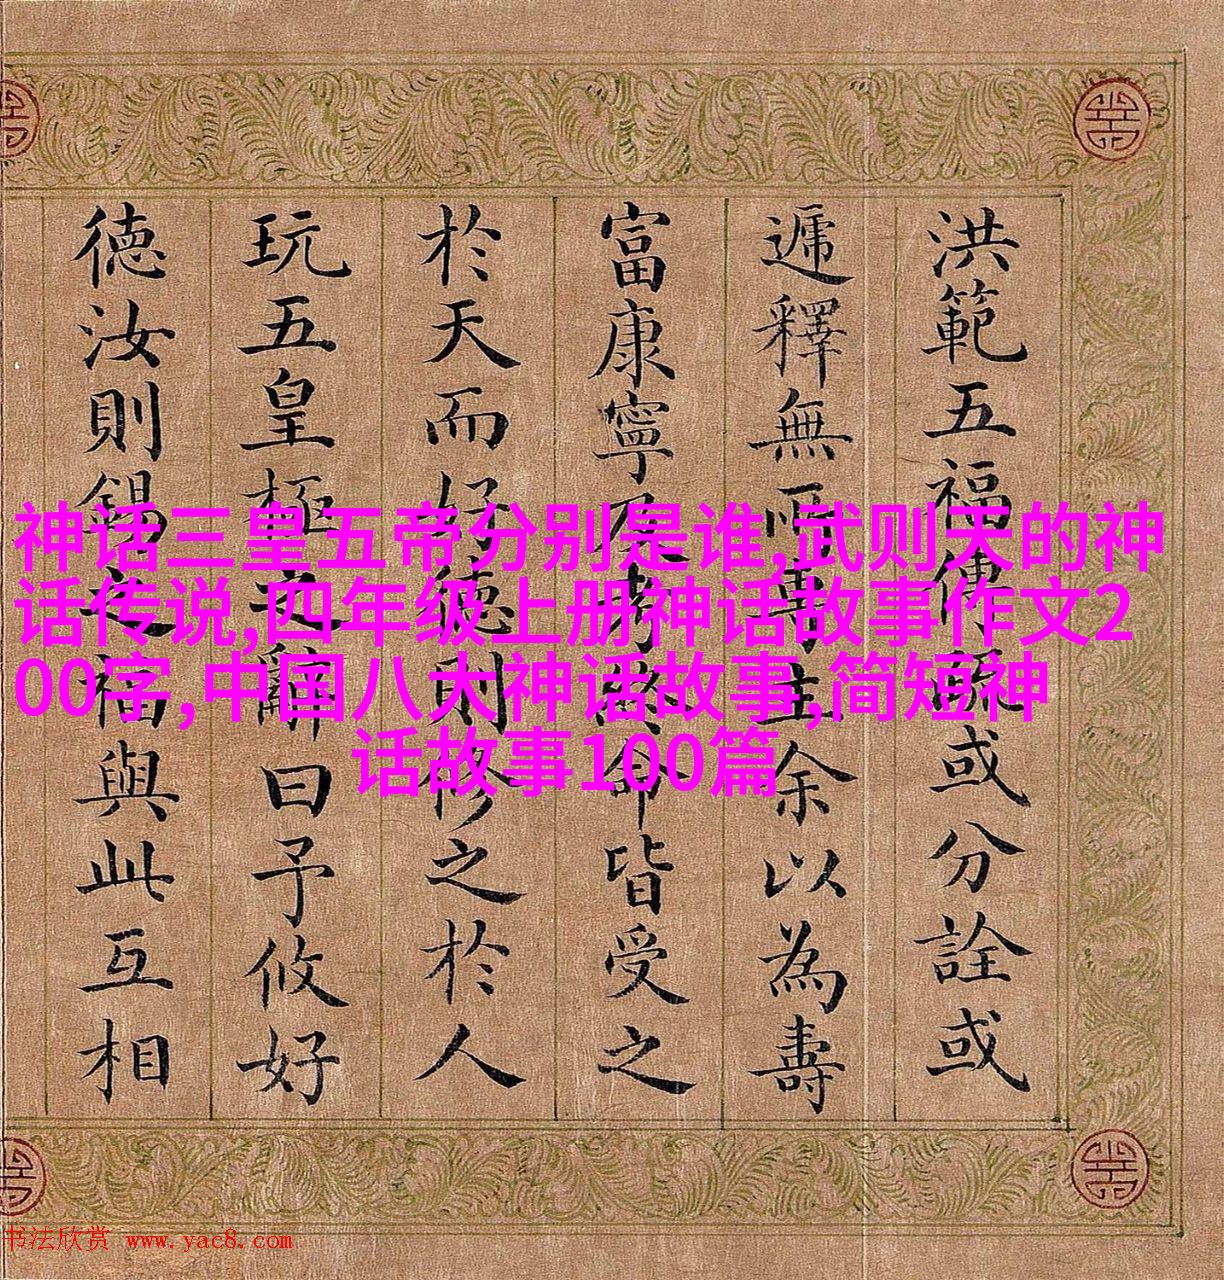 洪範五福傳疏或分詮或
遞釋無所專主余以為壽
富康寧乃考終命皆受之
於天而好德則修之於人
玩五皇極之辭曰予攸好
德汝則錫之福與此互相
神话三皇五帝分别是谁,武则天的神
话传说,四年级上册神话故事作文2
00字,中国八大神话故事,简短神
话故事100篇
书法欣赏 www.yac8.com